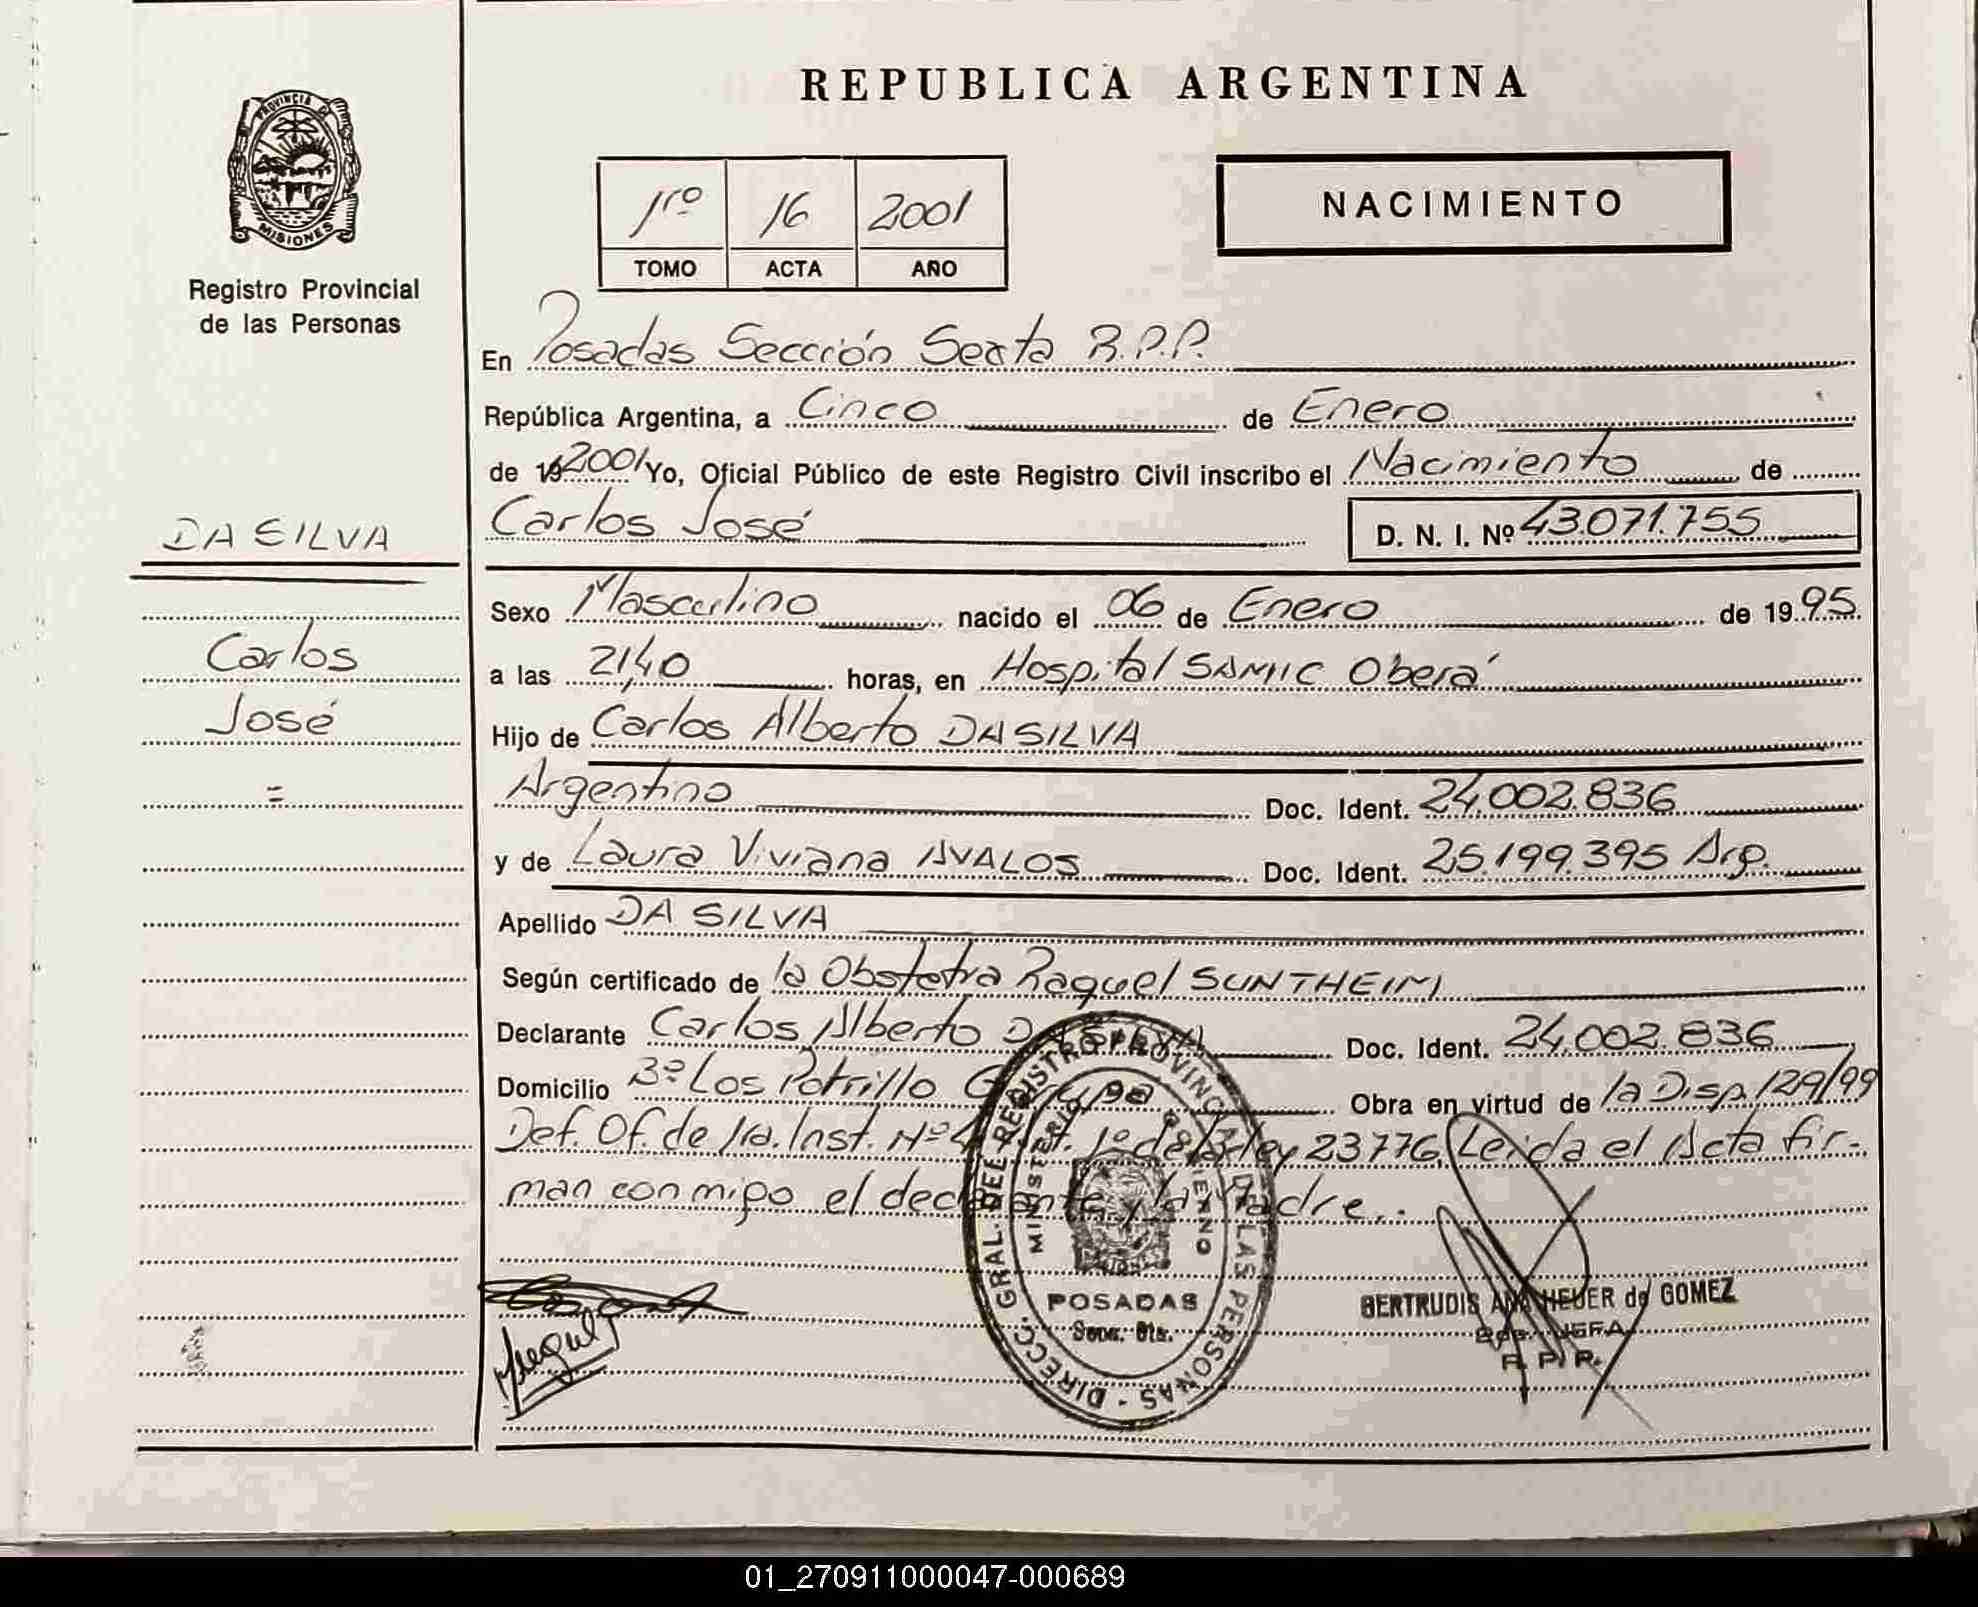 REPUBLICA ARGENTINA
PROVINCIA DE
MISIONES
Registro Provincial
de las Personas
1ro 16 2001
TOMO ACTA AÑO
NACIMIENTO
En Posadas Sección Sexta R.P.P.
República Argentina, a Cinco de Enero
de 192001 Yo, Oficial Público de este Registro Civil inscribo el Nacimiento de
DA SILVA
Carlos José D. N. I. Nº 43.071.755
Sexo Masculino nacido el 06 de Enero de 1995
Carlos
a las 21,40 horas, en Hospital SAMIC Oberá
José
Hijo de Carlos Alberto DA SILVA
=
Argentino Doc. Ident. 24.002.836
y de Laura Viviana AVALOS Doc. Ident. 25.199.395 Arg.
Apellido DA SILVA
Según certificado de la Obstetra Raquel SUNTHEIM
Declarante Carlos Alberto DA SILVA Doc. Ident. 24.002.836
Domicilio Bº Los Potrillo Garupá Obra en virtud de la Disp. 129/99
Def. Of. de 1ra. Inst. Nº 4 Art. 1º de la ley 23776. Leida el Acta fir-
man conmigo el declarante y la Madre..
DIRECC. GRAL. DEL REGISTRO PROVINCIAL DE LAS PERSONAS
MINISTERIO DE GOBIERNO
POSADAS
Secc. 6ta.
GERTRUDIS ANA HEUER de GOMEZ
JEFA
R. P. P.
01_270911000047-000689